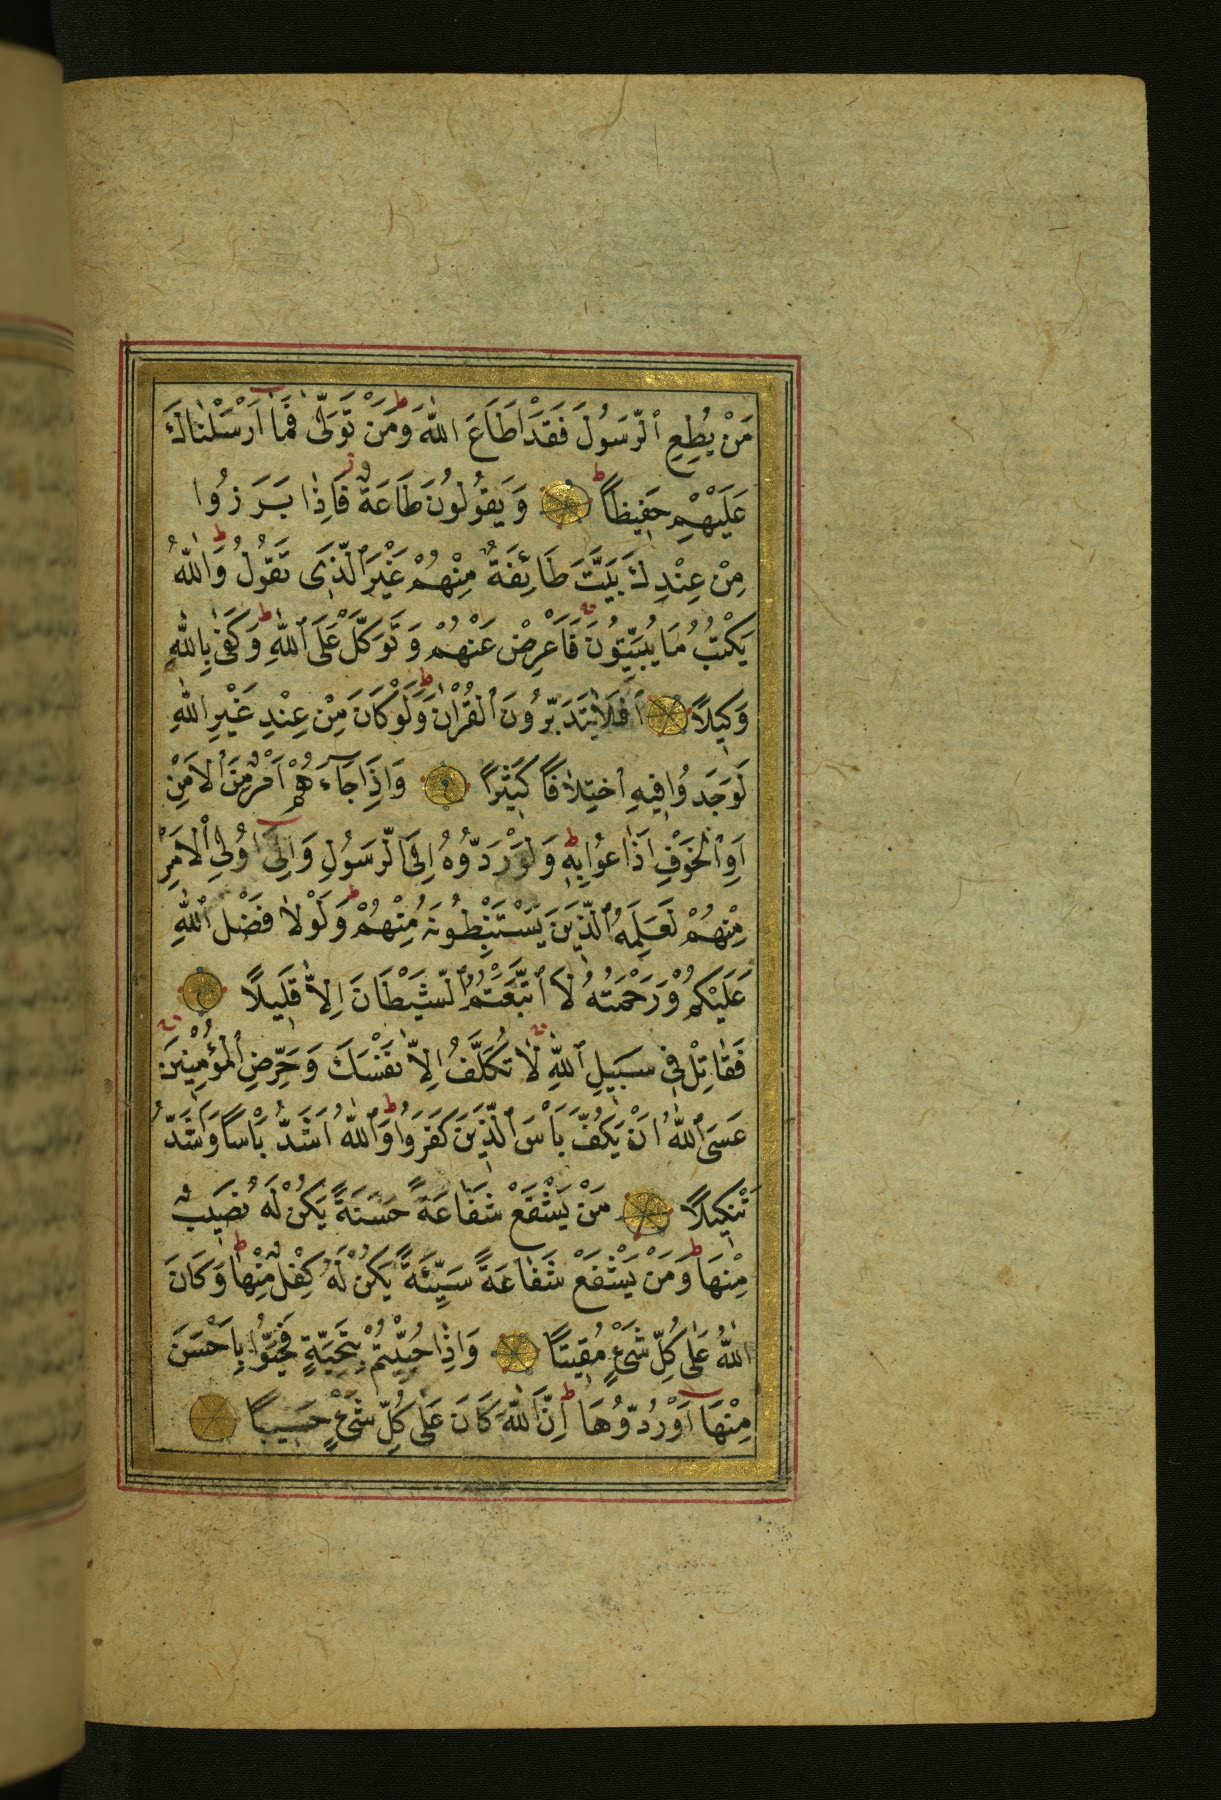 مَنْ يُطِعِ ٱلرَّسُولَ فَقَدْ اَطَاعَ اللّٰهَ وَمَنْ تَوَلّٰى فَمَٓا اَرْسَلْنَاكَ
عَلَيْهِمْ حَفِيظًا وَيَقُولُونَ طَاعَةٌ فَاِذَا بَرَزُوا
مِنْ عِنْدِكَ بَيَّتَ طَائِفَةٌ مِنْهُمْ غَيْرَ ٱلَّذِى تَقُولُ وَٱللّٰهُ
يَكْتُبُ مَا يُبَيِّتُونَ فَاَعْرِضْ عَنْهُمْ وَتَوَكَّلْ عَلَى ٱللّٰهِ وَكَفٰى بِاللّٰهِ
وَكِيلًا اَفَلَا يَتَدَبَّرُونَ ٱلْقُرْاٰنَ وَلَوْ كَانَ مِنْ عِنْدِ غَيْرِ اللّٰهِ
لَوَجَدُوا فِيهِ ٱخْتِلَافًا كَثِيرًا وَاِذَا جَٓاءَهُمْ اَمْرٌ مِنَ ٱلْاَمْنِ
اَوِ ٱلْخَوْفِ اَذَاعُوا بِهِ وَلَوْ رَدُّوهُ اِلَى ٱلرَّسُولِ وَاِلٰٓى اُولِى ٱلْاَمْرِ
مِنْهُمْ لَعَلِمَهُ ٱلَّذِينَ يَسْتَنْبِطُونَهُ مِنْهُمْ وَلَوْلَا فَضْلُ ٱللّٰهِ
عَلَيْكُمْ وَرَحْمَتُهُ لَا ٱتَّبَعْتُمُ ٱلشَّيْطَانَ اِلَّا قَلِيلًا
فَقَاتِلْ فِى سَبِيلِ ٱللّٰهِ لَا تُكَلَّفُ اِلَّا نَفْسَكَ وَحَرِّضِ ٱلْمُؤْمِنِينَ
عَسَى ٱللّٰهُ اَنْ يَكُفَّ بَأْسَ ٱلَّذِينَ كَفَرُوا وَٱللّٰهُ اَشَدُّ بَأْسًا وَاَشَدُّ
تَنْكِيلًا مَنْ يَشْفَعْ شَفَاعَةً حَسَنَةً يَكُنْ لَهُ نَصِيبٌ
مِنْهَا وَمَنْ يَشْفَعْ شَفَاعَةً سَيِّئَةً يَكُنْ لَهُ كِفْلٌ مِنْهَا وَكَانَ
اللّٰهُ عَلٰى كُلِّ شَىْءٍ مُقِيتًا وَاِذَا حُيِّيتُمْ بِتَحِيَّةٍ فَحَيُّوا بِاَحْسَنَ
مِنْهَٓا اَوْ رُدُّوهَا اِنَّ ٱللّٰهَ كَانَ عَلٰى كُلِّ شَىْءٍ حَسِيبًا